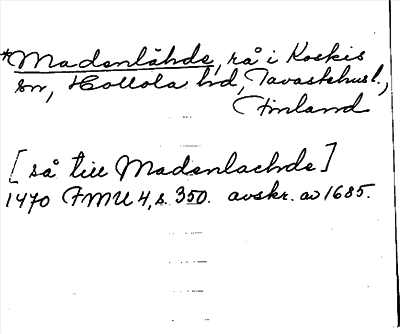 *Madenlähde, rå i Koskis
sn, Hollola hd, Tavastehus l.,
Finland
[så till Madenlachde]
1470 FMU 4, s. 350. avskr. av 1685.